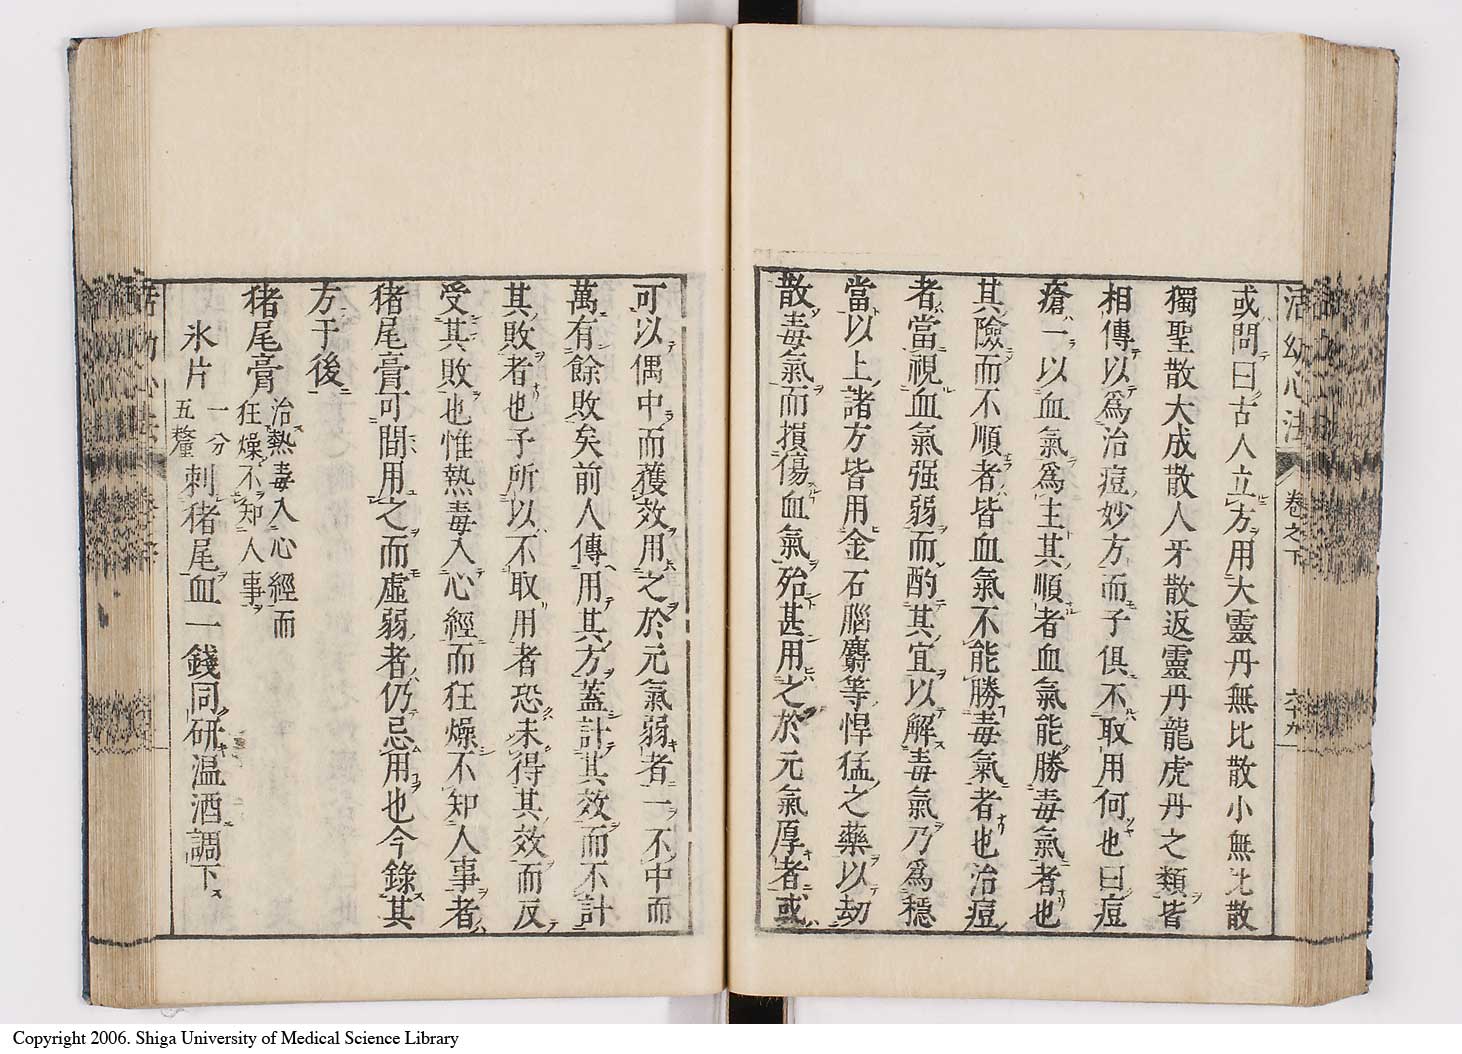 活幼心法 卷之下 六九
或問曰古人立方用大靈丹無比散小無比散
獨聖散大成散人牙散返靈丹龍虎丹之類皆
相傳以爲治痘妙方而子俱不取用何也曰痘
瘡一以血氣爲主其順者血氣能勝毒氣者也
其險而不順者皆血氣不能勝毒氣者也治痘
者當視血氣强弱而酌其宜以解毒氣乃爲穩
當以上諸方皆用金石腦麝等悍猛之藥以劫
散毒氣而損傷血氣殆甚用之於元氣厚者或
可以偶中而獲效用之於元氣弱者一不中而
萬有餘敗矣前人傳用其方蓋計其效而不計
其敗者也予所以不取用者恐未得其效而反
受其敗也惟熱毒入心經而狂燥不知人事者
猪尾膏可間用之而虛弱者仍忌用也今錄其
方于後
猪尾膏 治熱毒入心經而
狂燥不知人事
氷片 一分
五釐 刺猪尾血一錢同研温酒調下
Copyright 2006. Shiga University of Medical Science Library